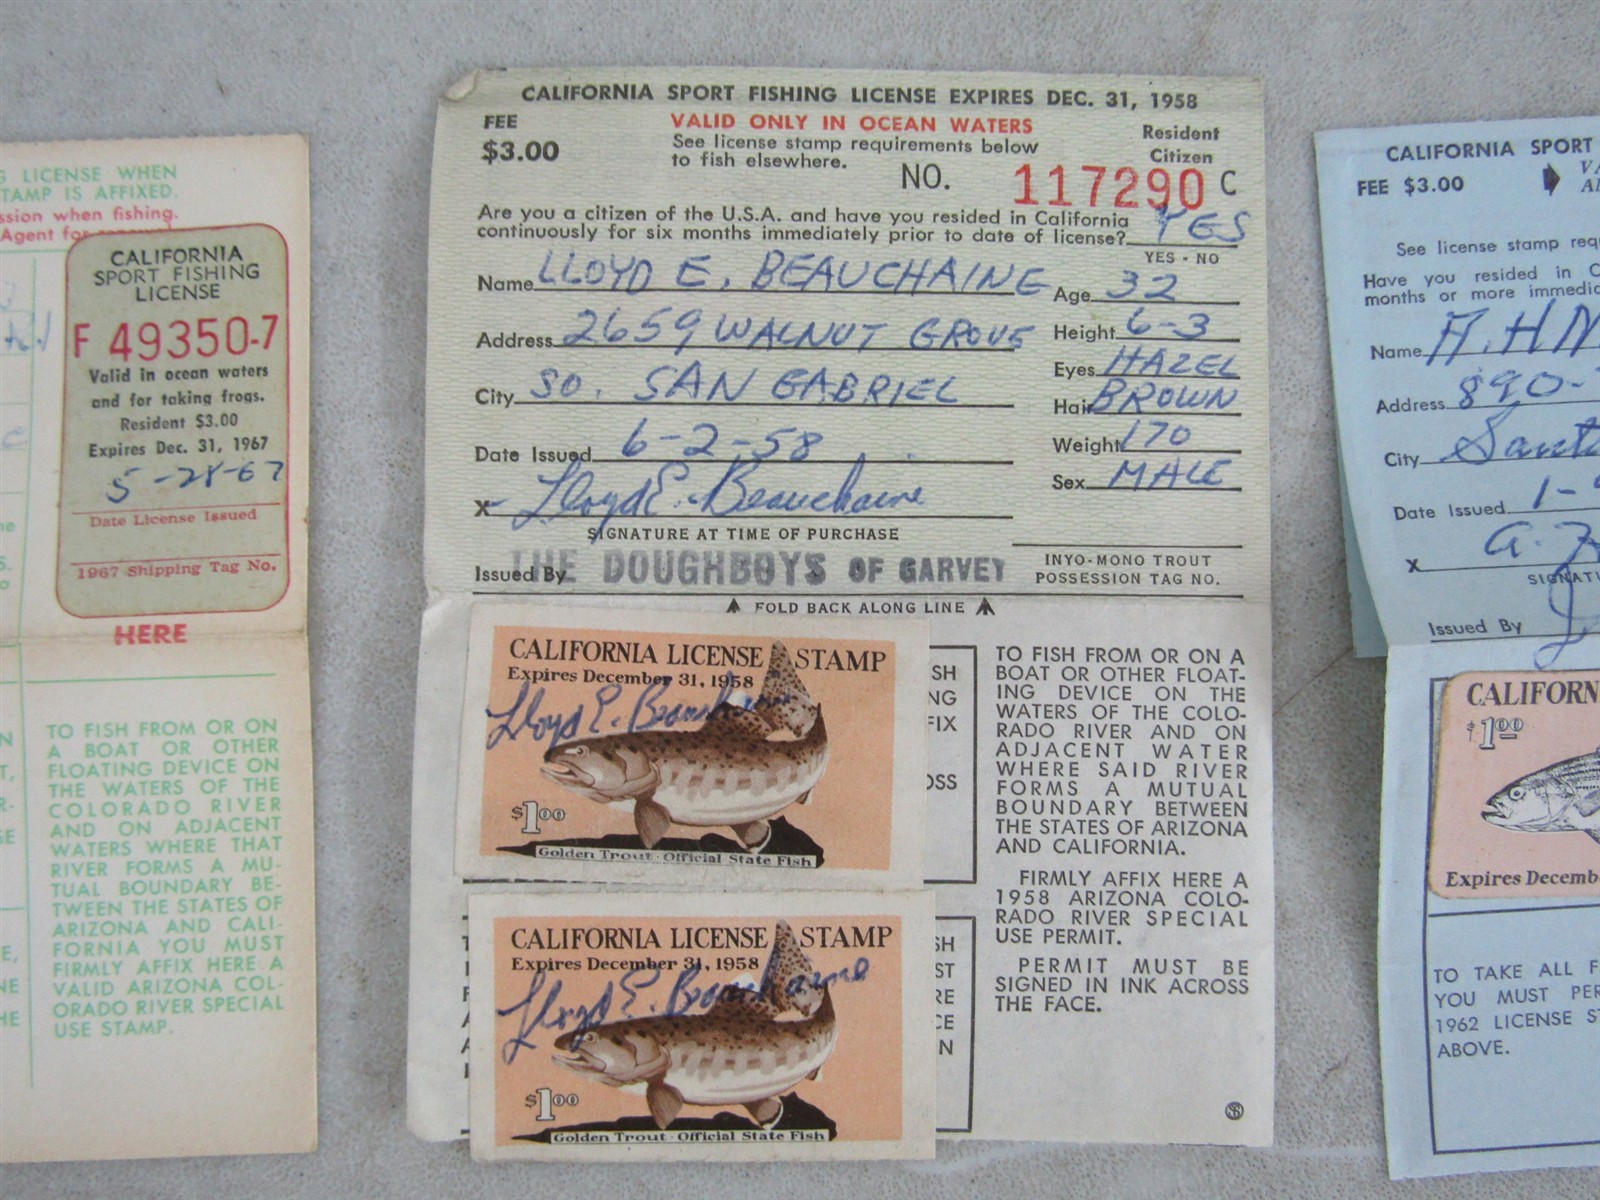 G LICENSE WHEN
STAMP IS AFFIXED.
ssion when fishing.
Agent for
CALIFORNIA
SPORT FISHING
LICENSE
F 49350-7
Valid in ocean waters
and for taking frogs.
Resident $3.00
Expires Dec. 31, 1967
5-28-67
Date License Issued
1967 Shipping Tag No.
HERE
TO FISH FROM OR ON
A BOAT OR OTHER
FLOATING DEVICE ON
THE WATERS OF THE
COLORADO RIVER
AND ON ADJACENT
WATERS WHERE THAT
RIVER FORMS A MU-
TUAL BOUNDARY BE-
TWEEN THE STATES OF
ARIZONA AND CALI-
FORNIA YOU MUST
FIRMLY AFFIX HERE A
VALID ARIZONA COL-
ORADO RIVER SPECIAL
USE STAMP.
CALIFORNIA SPORT FISHING LICENSE EXPIRES DEC. 31, 1958
FEE
$3.00
VALID ONLY IN OCEAN WATERS
See license stamp requirements below
to fish elsewhere.
Resident
Citizen
NO. 117290 C
Are you a citizen of the U.S.A. and have you resided in California
continuously for six months immediately prior to date of license? YES
YES - NO
Name LLOYD E. BEAUCHAINE
Age 32
Address 2659 WALNUT GROVE
Height 6-3
Eyes HAZEL
City SO. SAN GABRIEL
Hair BROWN
Date Issued 6-2-58
Weight 170
Sex MALE
X Lloyd E. Beauchaine
SIGNATURE AT TIME OF PURCHASE
Issued By THE DOUGHBOYS OF GARVEY
INYO-MONO TROUT
POSSESSION TAG NO.
FOLD BACK ALONG LINE
CALIFORNIA LICENSE STAMP
Expires December 31, 1958
Lloyd E. Beauchaine
$1.00
Golden Trout · Official State Fish
CALIFORNIA LICENSE STAMP
Expires December 31, 1958
Lloyd E. Beauchaine
$1.00
Golden Trout · Official State Fish
SH
NG
FIX
OSS
SH
ST
RE
CE
N
TO FISH FROM OR ON A
BOAT OR OTHER FLOAT-
ING DEVICE ON THE
WATERS OF THE COLO-
RADO RIVER AND ON
ADJACENT WATER
WHERE SAID RIVER
FORMS A MUTUAL
BOUNDARY BETWEEN
THE STATES OF ARIZONA
AND CALIFORNIA.
FIRMLY AFFIX HERE A
1958 ARIZONA COLO-
RADO RIVER SPECIAL
USE PERMIT.
PERMIT MUST BE
SIGNED IN INK ACROSS
THE FACE.
CALIFORNIA SPORT
FEE $3.00
See license stamp requ
Have you resided in C
months or more immedia
Name A. HN
Address 890-
City Santa
Date Issued 1-
X
SIGNATU
Issued By
CALIFORN
$1.00
Expires Decemb
TO TAKE ALL F
YOU MUST PER
1962 LICENSE ST
ABOVE.